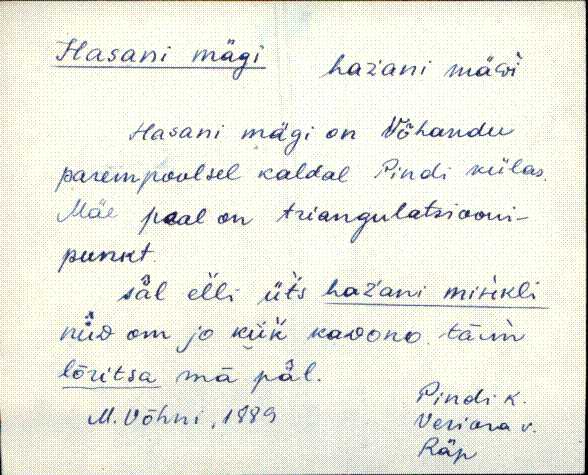 Hasani mägi    hazani mäǵi
Hasani mägi on Võhandu
parempoolsel kaldal Pindi külas.
Mäe peal on triangulatsiooni-
punkt.
säl elli üts hazani mihkli
nüd om jo kük kaono. tä
lõritsa mā päl.
M. Võhni, 1889
Pindi k.
Veriora v.
Räp